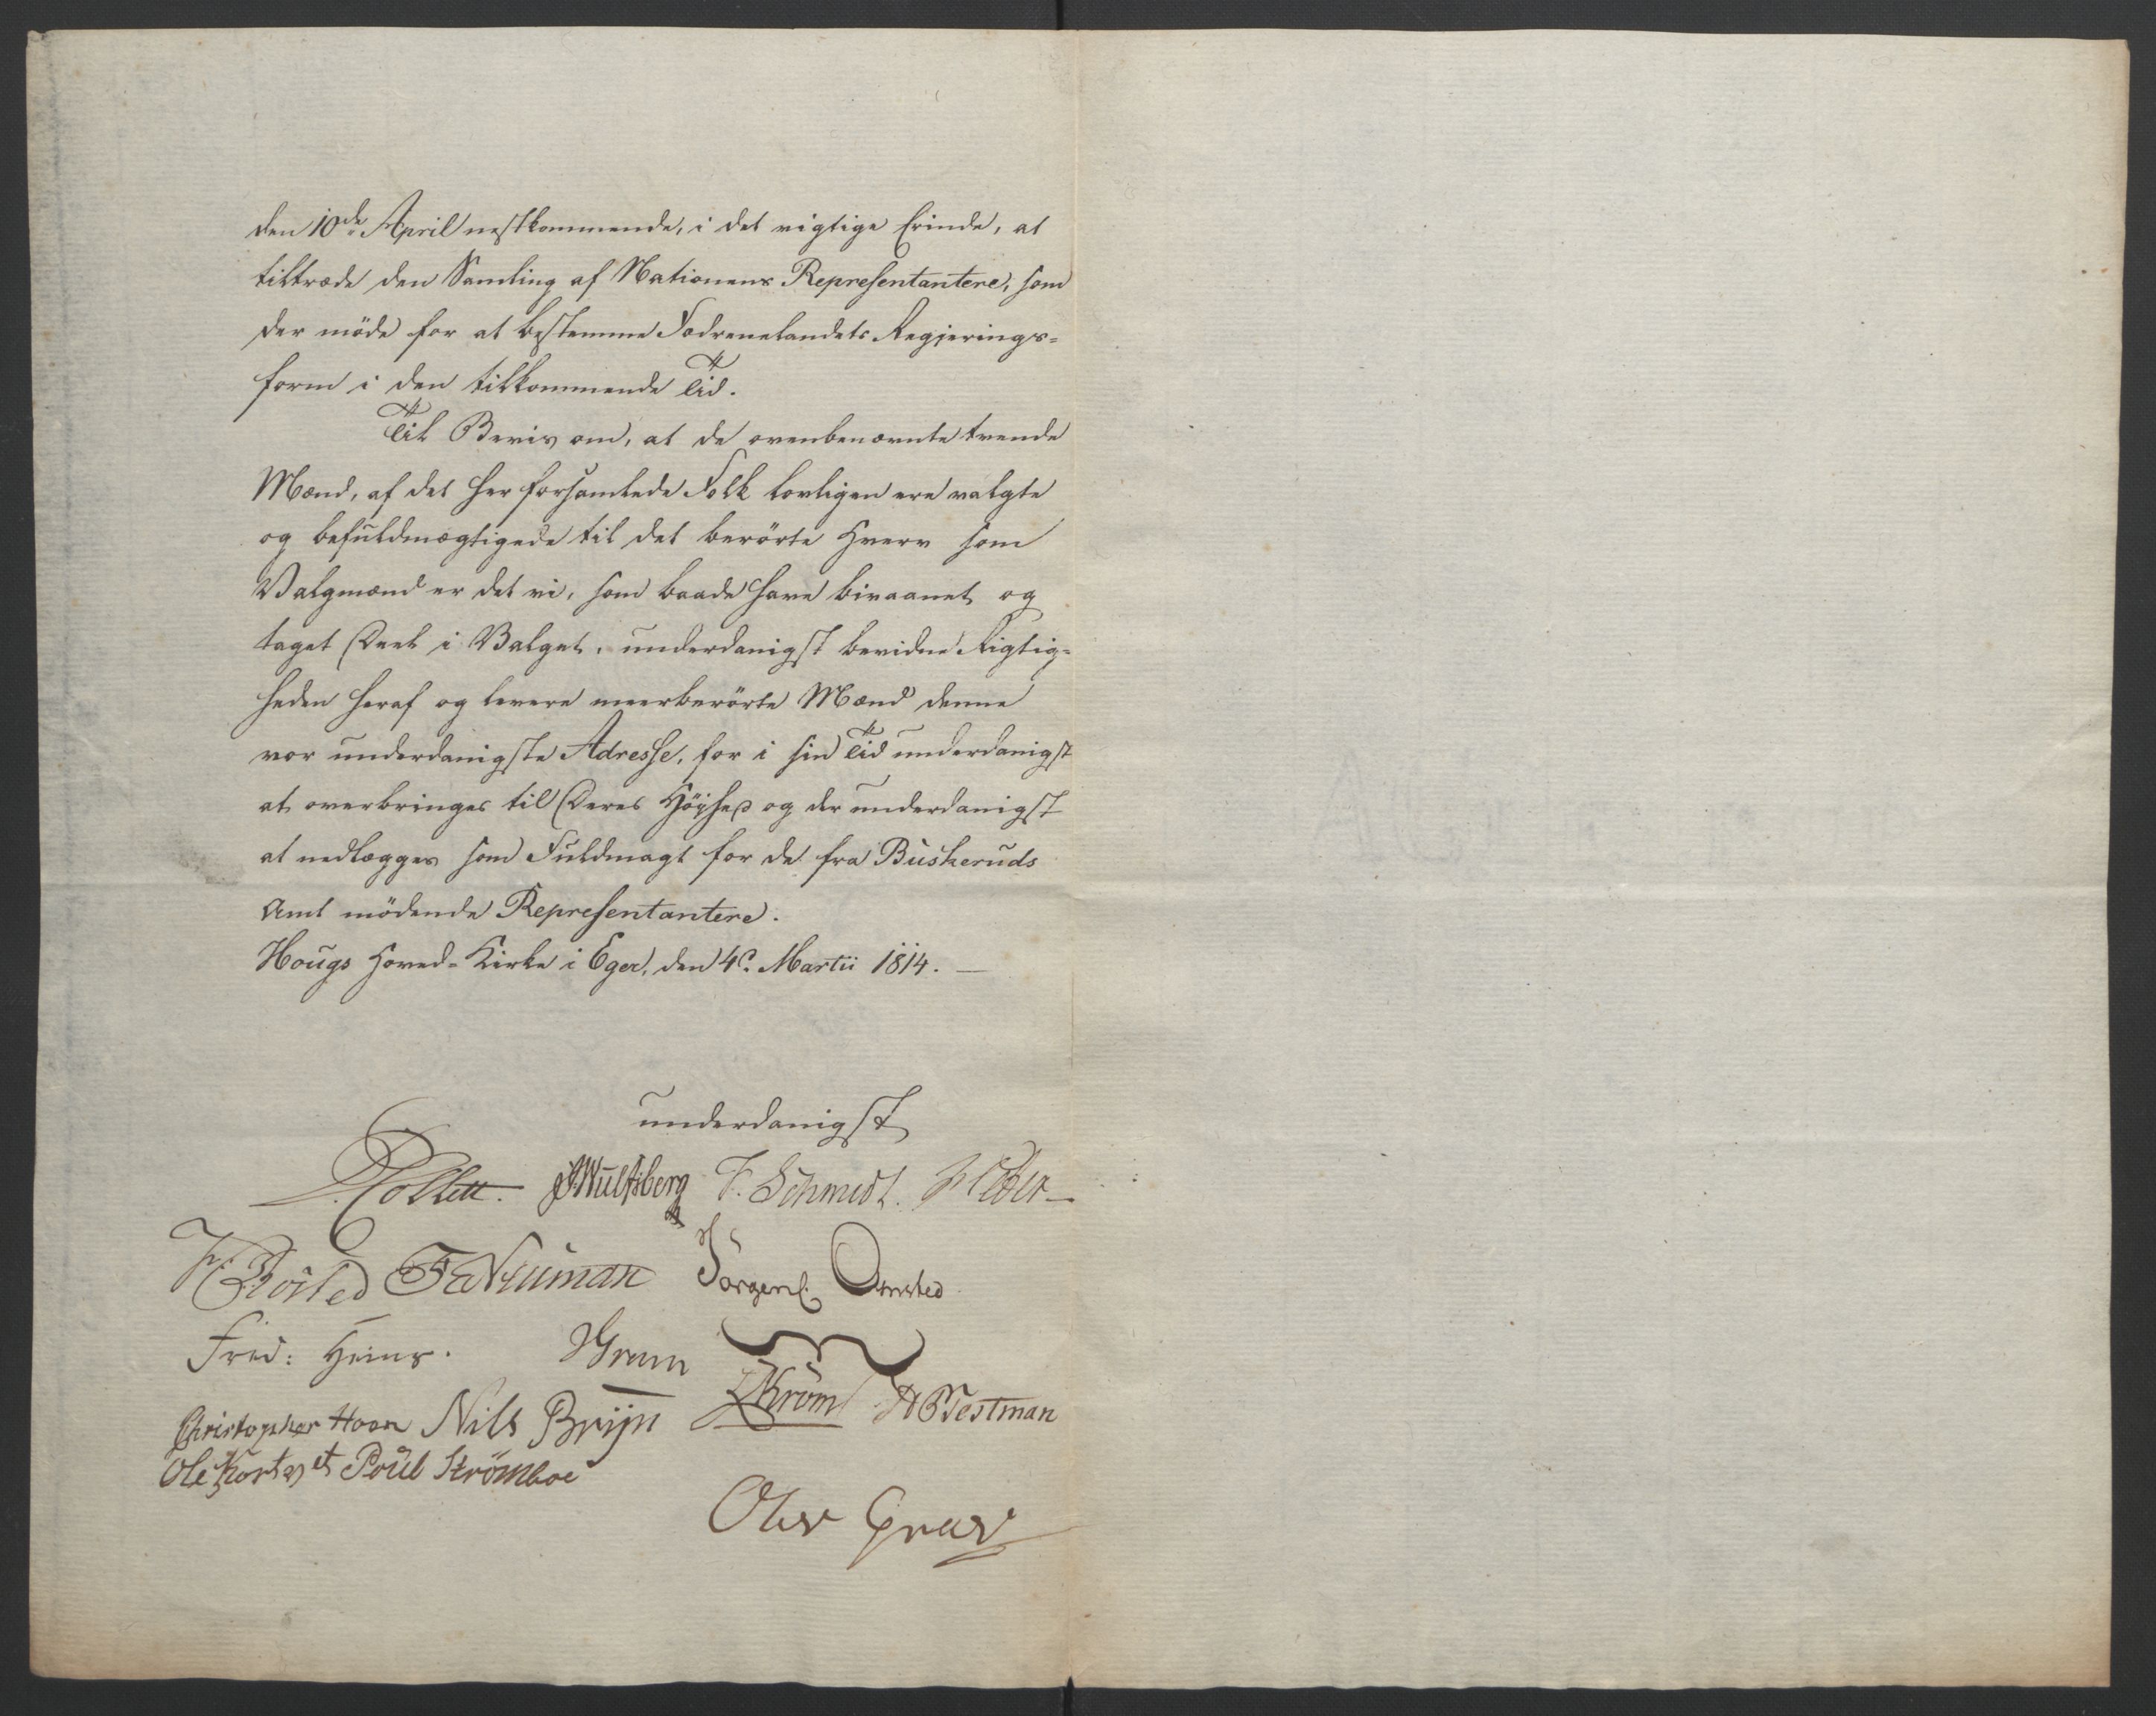 den 10de April nestkommende, i det vigtige Erinde, at
tiltræde den Samling af Nationens Representantere, som
der möde for at bestemme Fædrenelandets Regjerings-
form i den tilkommende Tid.
Til Beviis om, at de ovenbenævnte trende
Mænd, af det her forsamlede Folk lovligen ere valgte
og befuldmægtigede til det berörte Hverv som
Valgmænd er det vi, som baade have bivaanet og
taget Deel i Valget, underdanigst bevidne Rigtig-
heden heraf og levere meerberörte Mænd denne
vor underdanigste Adresse, for i sin Tid underdanigst
at overbringes til Deres Höyhed og der underdanigst
at nedlægges som Fuldmagt for de fra Buskeruds
Amt mödende Representantere.
Hougs Hoved-Kirke i Eger, den 4de Martii 1814. —
underdanigst
P. Collett. Wulfsberg F. Schmidt.
Neuman Jörgen Omsted
Fred: Heins. Gram
Kröm Westman
Christopher Hoen Nils Brijn
Ole Poul Strömboe